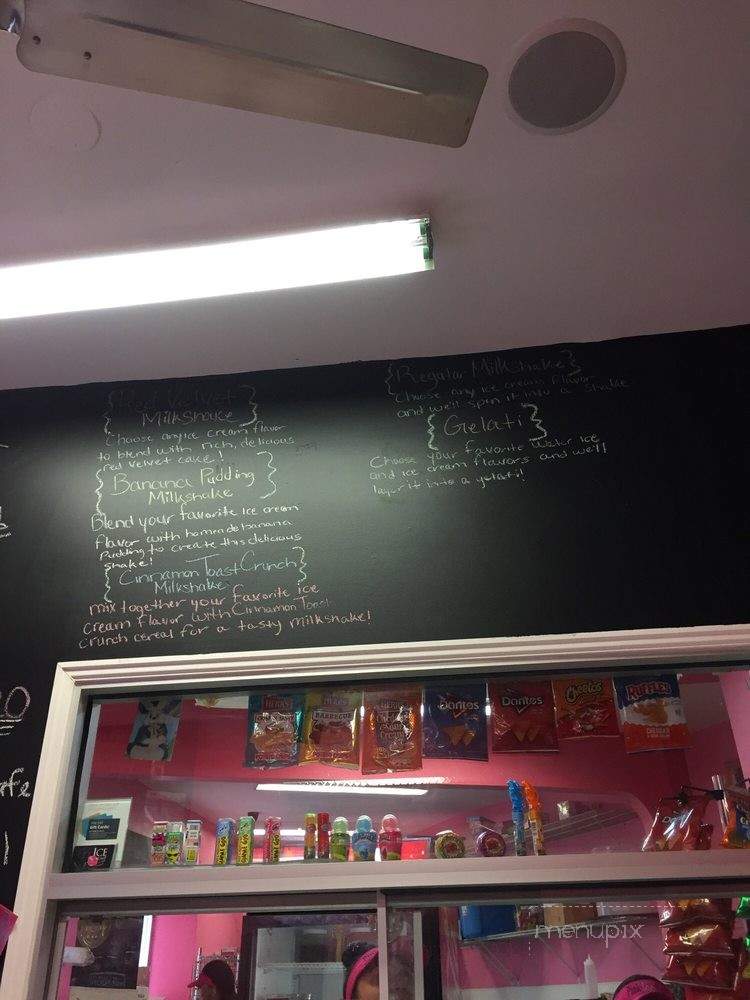 Red Velvet
Milkshake
Choose any ice cream flavor
to blend with rich, delicious
red velvet cake!
Banana Pudding
Milkshake
Blend your favorite ice cream
flavor with homeade banana
Pudding to create this delicious
shake!
Cinnamon Toast Crunch
Milkshake
mix together your favorite ice
cream flavor with Cinnamon Toast
crunch cereal for a tasty milkshake!
Regular Milkshake
Choose any ice cream flavor
and we'll spin it into a shake
Gelati
Choose your favorite water ice
and ice cream flavors and we'll
layer it into a gelati!
HERR'S
BARBECUE
HERR'S
Doritos
Doritos
Cheetos
RUFFLES
CHEDDAR
Gift Cards!
ICE
menupix